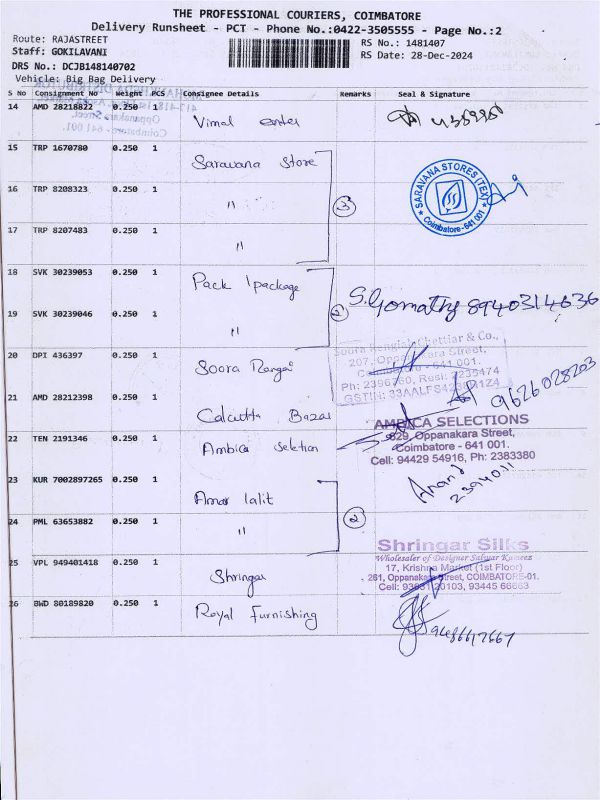 THE PROFESSIONAL COURIERS, COIMBATORE
Delivery Runsheet - PCT - Phone No.:0422-3505555 - Page No.:2
Route: RAJASTREET
RS No.: 1481407
Staff: GOKILAVANI
RS Date: 28-Dec-2024
DRS No.: DCJB148140702
Vehicle: Big Bag Delivery
S No Consignment No Weight PCS Consignee Details Remarks Seal & Signature
14 AMD 28218822 0.250 1 Vimal
Oppanakara Street,
Coimbatore - 641 001.
15 TRP 1670780 0.250 1 Saravana Store
SARAVANA STORES (TEX)
Coimbatore-641 001
16 TRP 8208323 0.250 1 "
3
17 TRP 8207483 0.250 1 "
18 SVK 30239053 0.250 1 Pack 1package
S.Gomathy 8940314636
2
19 SVK 30239046 0.250 1 "
Chettiar & Co.,
20 DPI 436397 0.250 1 Soora
207, Oppanakara Street,
Coimbatore - 641 001.
Ph: 2396760, Resi: 2235474
21 AMD 28212398 0.250 1 Calcutta Bazar
9626028203
22 TEN 2191346 0.250 1 Ambica Seletion
AMBICA SELECTIONS
829, Oppanakara Street,
Coimbatore - 641 001.
Cell: 94429 54916, Ph: 2383380
23 KUR 7002897265 0.250 1 Amar lalit
Anand
2394011
24 PML 63653882 0.250 1 "
2
25 VPL 949401418 0.250 1 Shringar
Shringar Silks
Wholesaler of Designer Salwar Kameez
17, Krishna Market (1st Floor)
261, Oppanakara Street, COIMBATORE-01.
26 BWD 80189820 0.250 1 Royal Furnishing